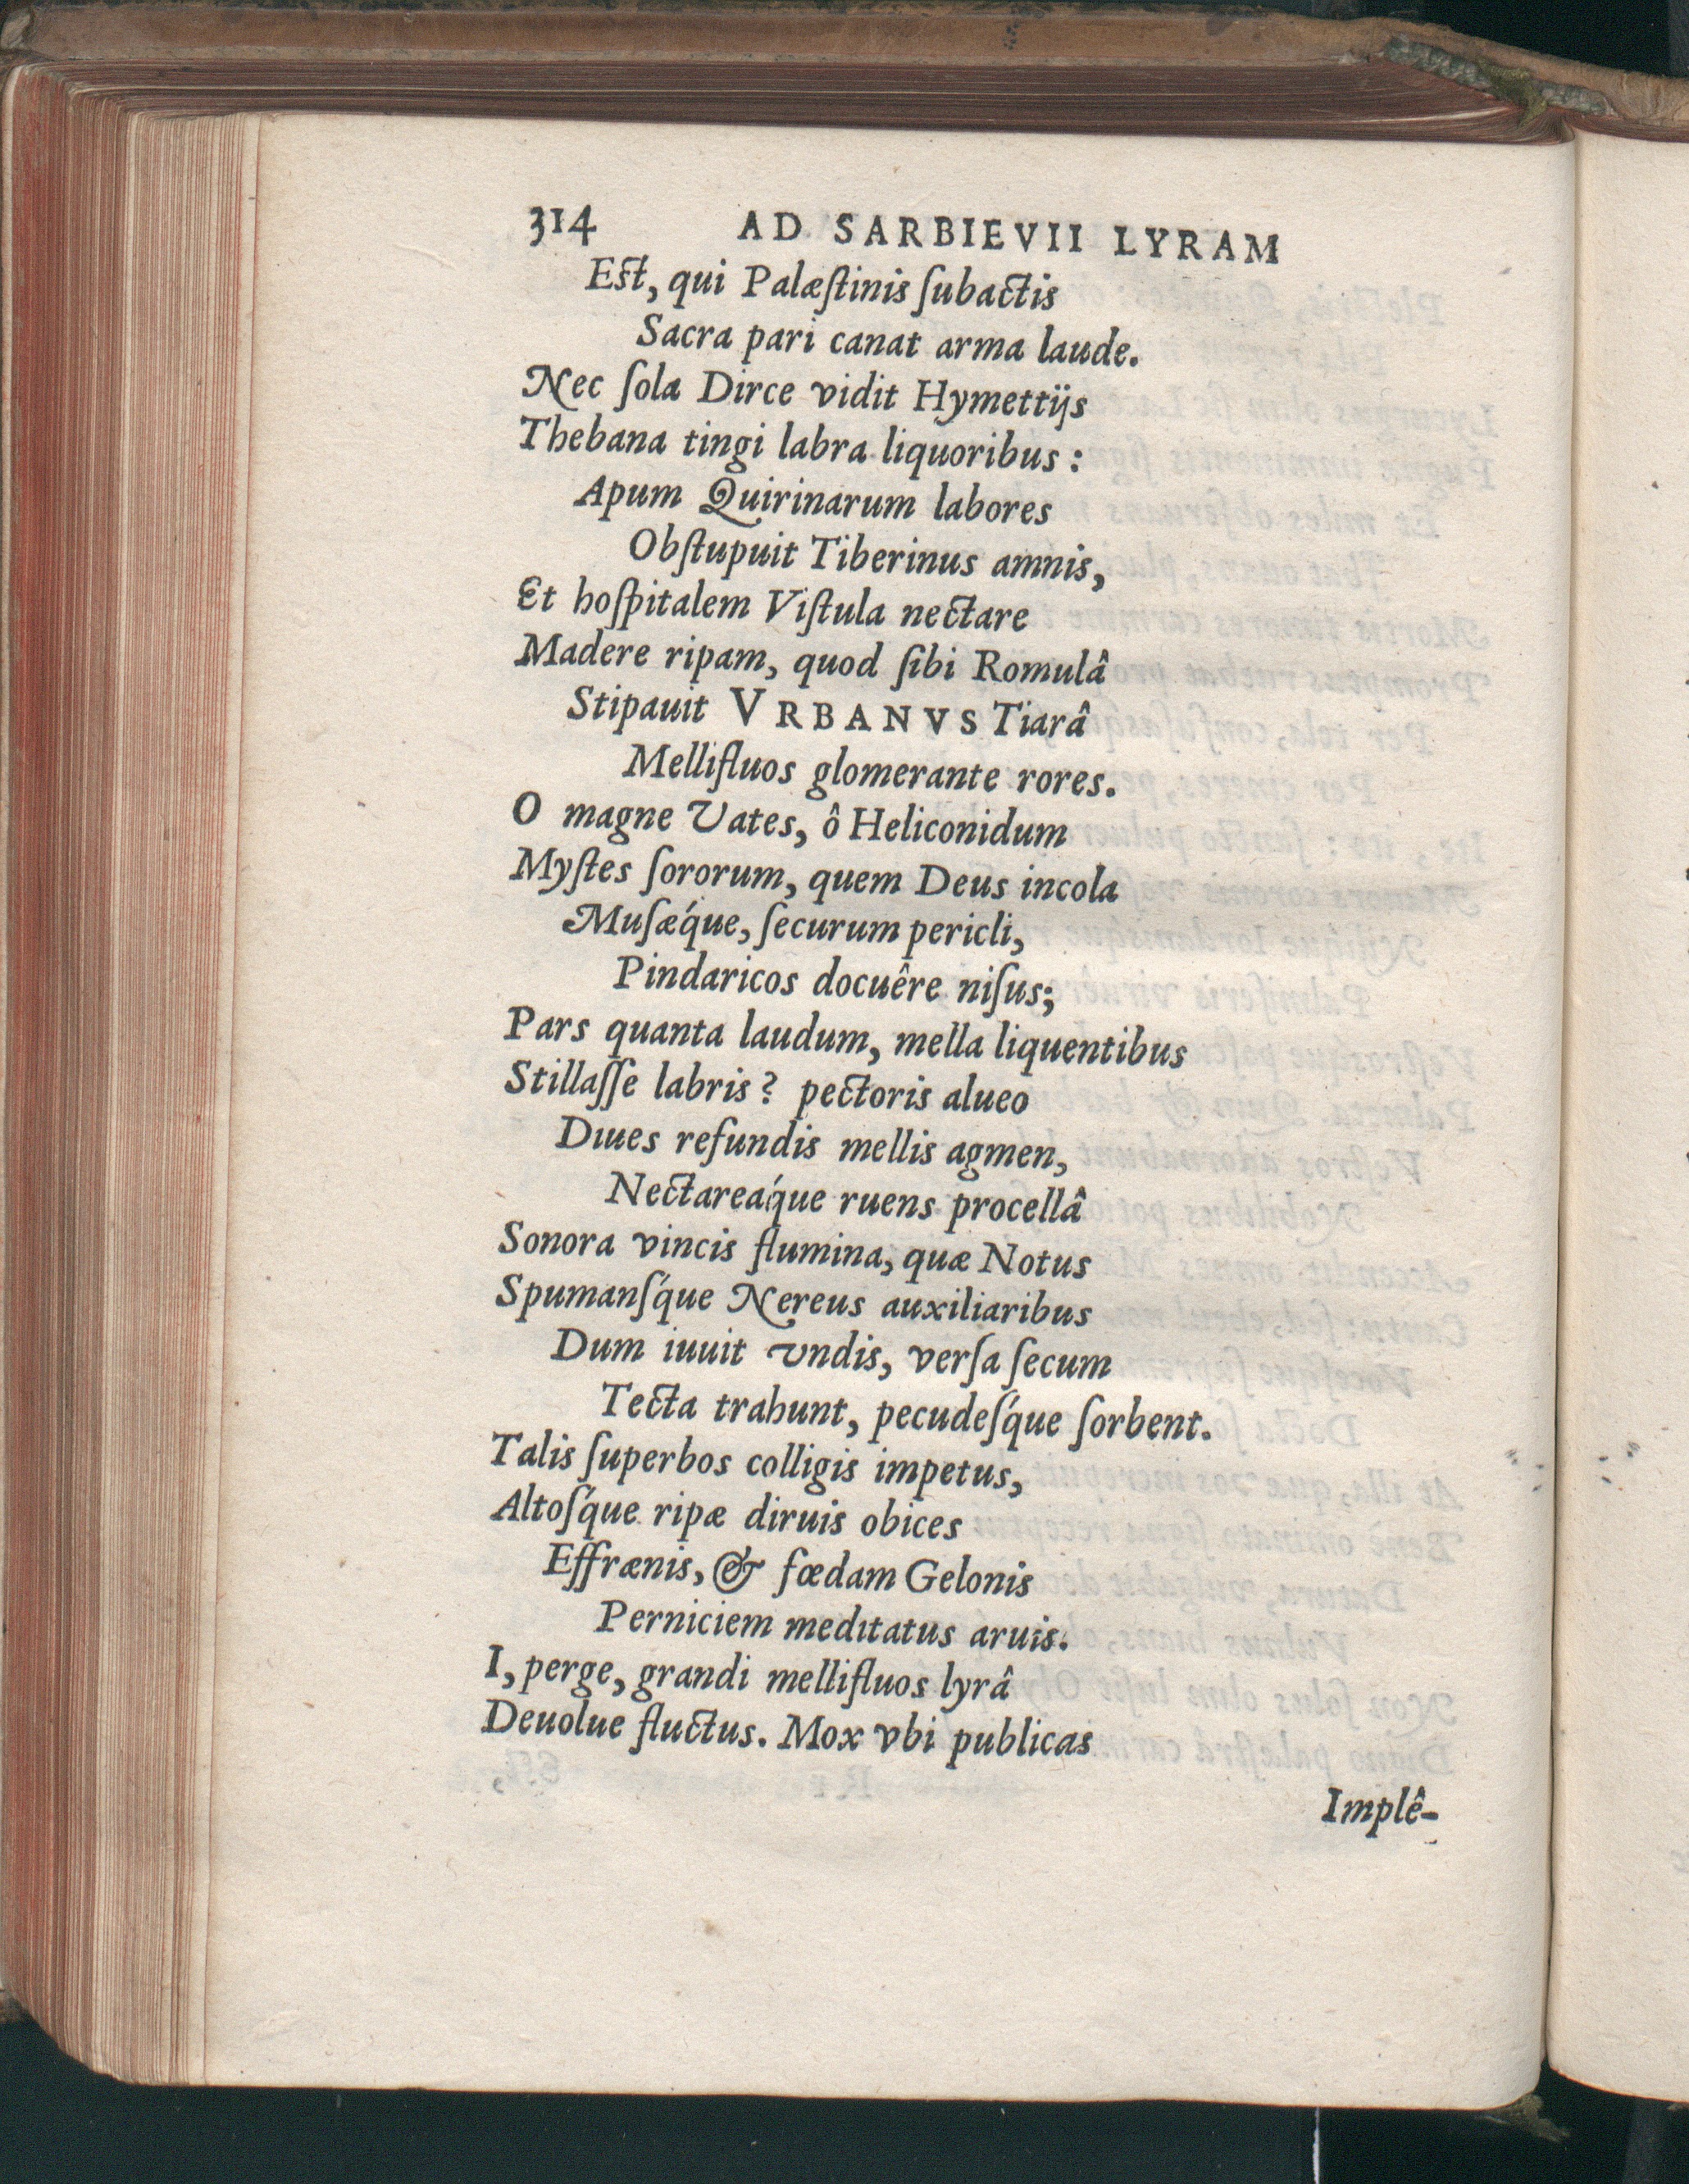 314 AD SARBIEVII LYRAM
Eſt, qui Palæſtinis ſubactis
Sacra pari canat arma laude.
Nec ſola Dirce vidit Hymettijs
Thebana tingi labra liquoribus:
Apum Quirinarum labores
Obſtupuit Tiberinus amnis,
Et hoſpitalem Viſtula nectare
Madere ripam, quod ſibi Romulâ
Stipauit VRBANVS Tiarâ
Mellifluos glomerante rores.
O magne Vates, ô Heliconidum
Myſtes ſororum, quem Deus incola
Muſæq́ue, ſecurum pericli,
Pindaricos docuêre niſus;
Pars quanta laudum, mella liquentibus
Stillaſſe labris? pectoris alueo
Diues refundis mellis agmen,
Nectareaq́ue ruens procellâ
Sonora vincis flumina, quæ Notus
Spumanſq́ue Nereus auxiliaribus
Dum iuuit vndis, verſa ſecum
Tecta trahunt, pecudeſq́ue ſorbent.
Talis ſuperbos colligis impetus,
Altoſq́ue ripæ diruis obices
Effrænis, & fœdam Gelonis
Perniciem meditatus aruis.
I, perge, grandi mellifluos lyrâ
Deuolue fluctus. Mox vbi publicas
Implê-